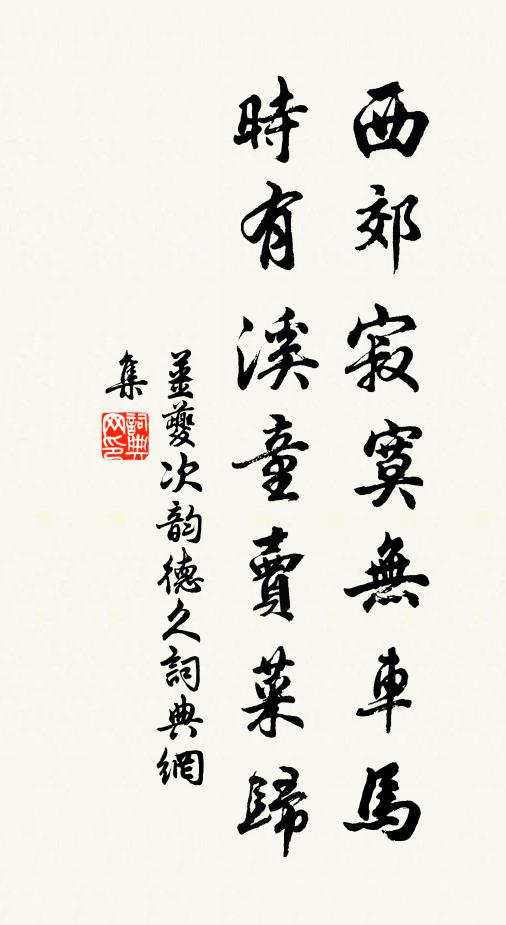 西郊寂寞無車馬
時有溪童賣菜歸
姜夔次韵德久詞典網
集
詞典
网印